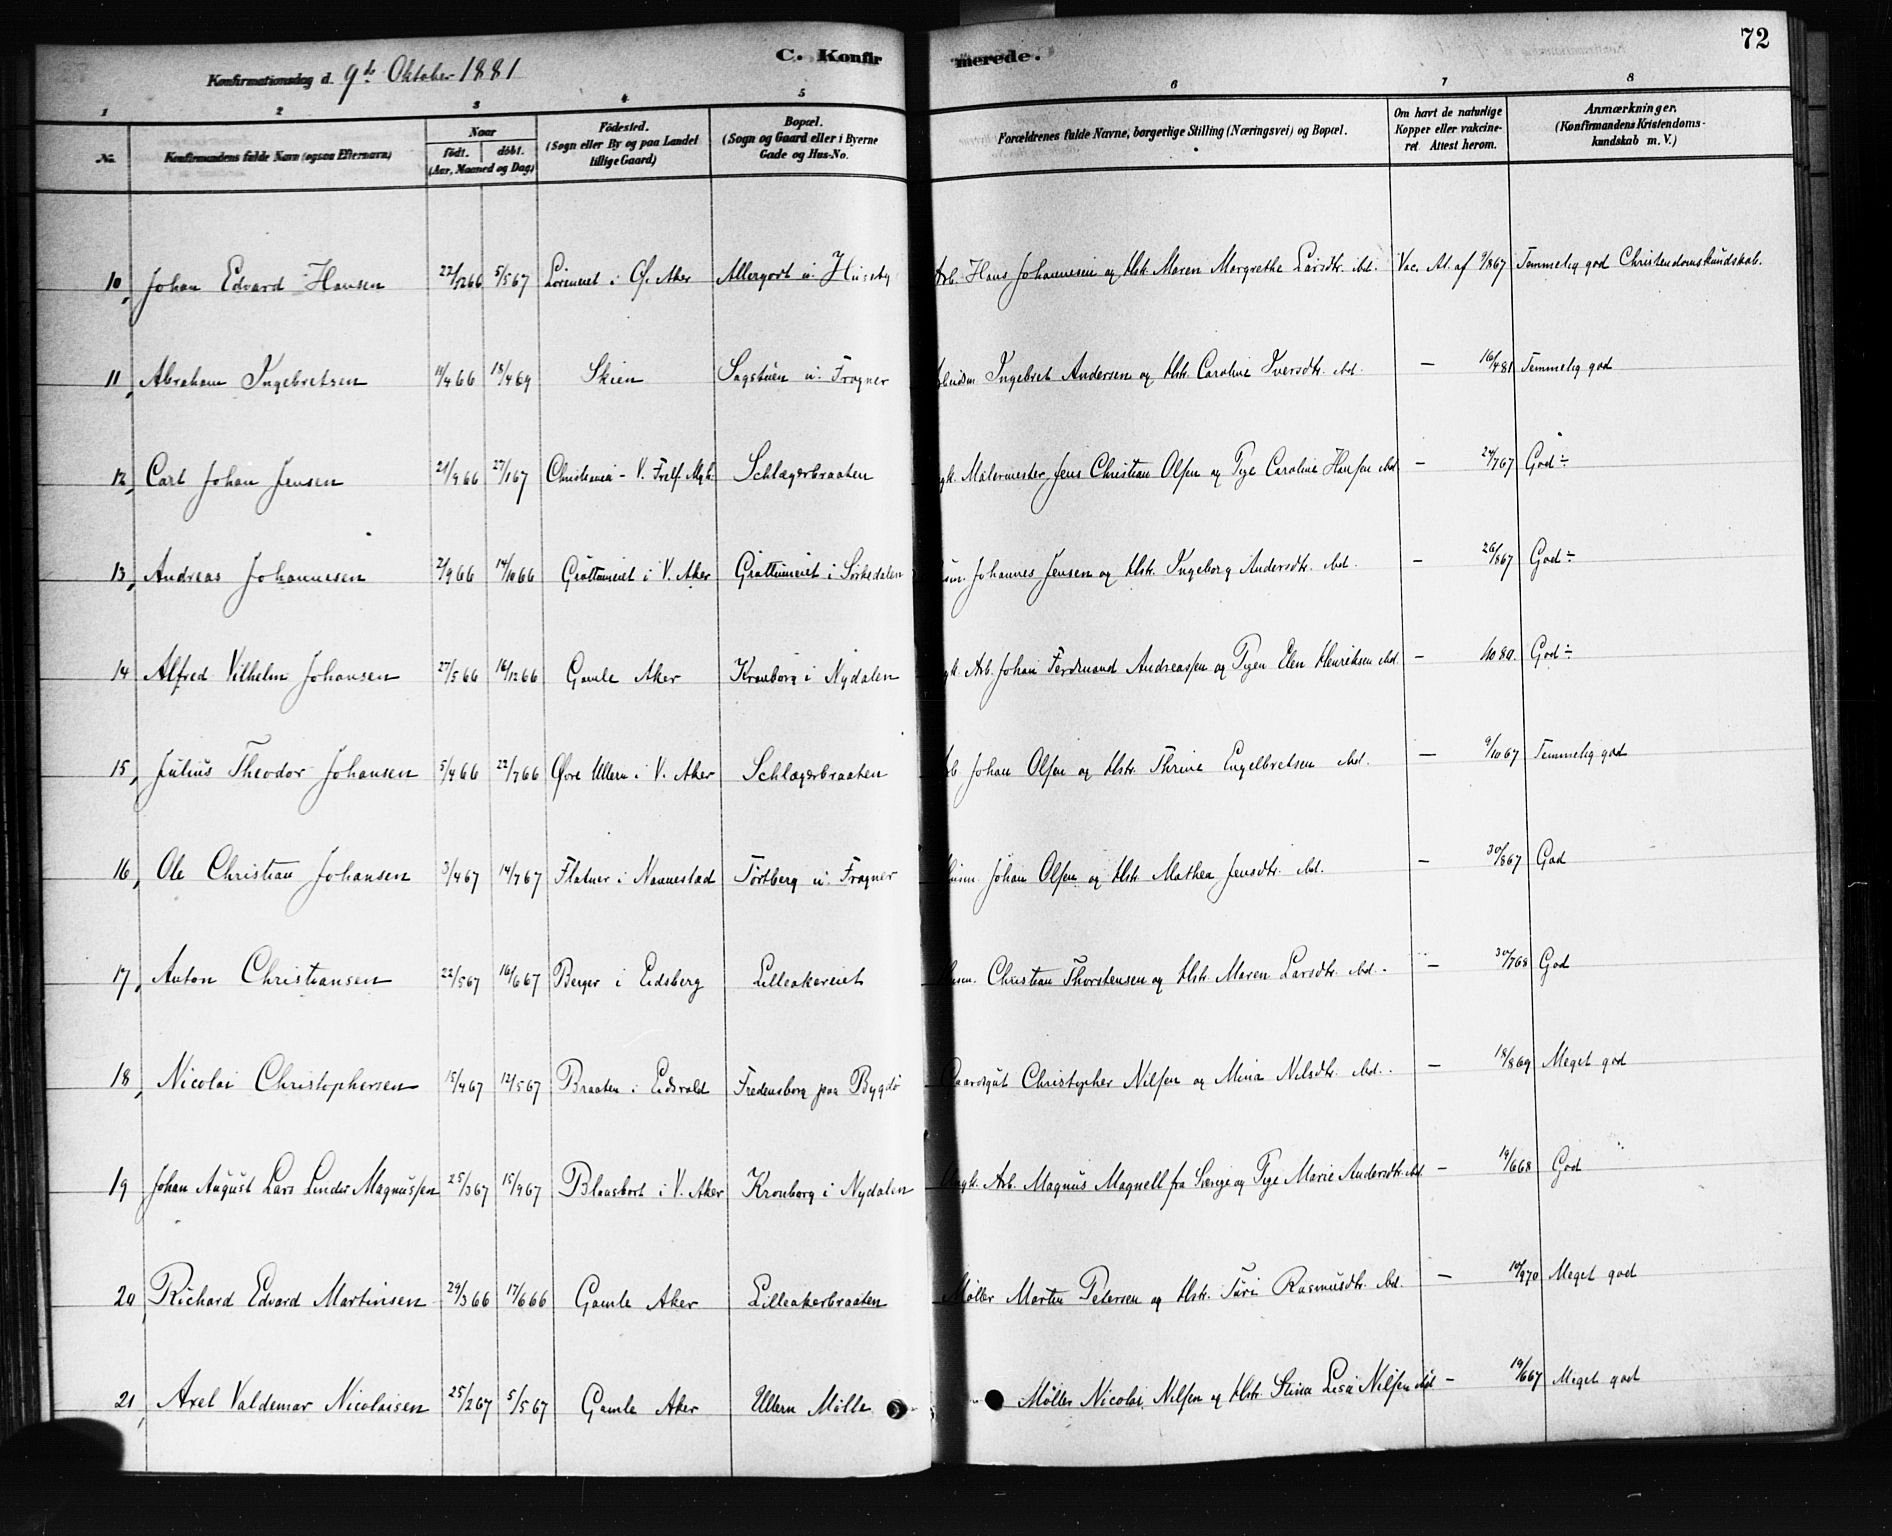 72
C. Konfirmerede.
Konfirmationsdag d. 9de Oktober 1881
1 2 3 4 5 6 7 8
No. Konfirmandens fulde Navn (ogsaa Efternavn) Naar født. døbt. (Aar, Maaned og Dag) Fødested. (Sogn eller By og paa Landet tillige Gaard) Bopæl. (Sogn og Gaard eller i Byerne Gade og Hus-No. Forældrenes fulde Navne, borgerlige Stilling (Næringsvei) og Bopæl. Om havt de naturlige Kopper eller vakcineret Attest herom. Anmærkninger. (Konfirmandens Kristendomskundskab m. V.)
10, Johan Edvard Hansen 22/1266 5/567 Løreneiet i Ø. Aker Allergodt u. Huseby Arb. Hans Johannesen og Hstr. Maren Margrethe Larsdtr. ibd. Vac. At. af 9/867 Temmelig god Christendomskundskab.
11, Abraham Ingebretsen 11/466 18/469 Skien Sagstuen u. Frogner Ingebret Andersen og Hstr. Caroline Iversdtr. ibd. — 16/481 Temmelig god
12, Carl Johan Jensen 21/966 27/167 Christiania - V. Frels. Mgh. Schlagerbraaten Ugk. Malermester Jens Christian Olsen og Pige Caroline Hansen ibd — 24/767 God
13, Andreas Johannesen 2/966 14/1066 Grøttumeiet i V. Aker Grøttumeiet i Sørkedalen Husm. Johannes Jensen og Hstr. Ingeborg Andersdtr. ibd. — 26/867 God
14 Alfred Vilhelm Johansen 27/566 16/1266 Gamle Aker Kronborg i Nydalen Ugk. Arb. Johan Ferdinand Andreassen og Pigen Elen Henriksen ibd. — God
15, Julius Theodor Johansen 5/466 22/766 Øvre Ullern i V. Aker Schlagerbraaten Arb Johan Olsen og Hstr. Thrine Engelbretsen ibd. — 9/1067 Temmelig god
16, Ole Christian Johansen 3/467 14/767 Flatner i Nannestad Tørtberg u. Frogner Husm. Johan Olsen og Hstr. Mathea Jensdtr. ibd. — 30/867 God
17, Anton Christiansen 22/567 16/667 Berger i Eidsberg Lilleakereiet Husm. Christian Thorstensen og Hstr. Maren Larsdtr. ibd. — 30/768 God
18, Nicolai Christophersen 15/467 12/567 Braaten i Eidsvold Fredensborg paa Bygdø Gaardsgut Christopher Nilsen og Mina Nilsdtr. ibd. — 18/869 Meget god
19 Johan August Lars Linder Magnussen 25/367 15/967 Blaasbort i V. Aker Kronborg i Nydalen Ungk. Arb. Magnus Magnell fra Sverige og Pige Marie Andersdtr. ibd. — 19/668 God
20, Richard Edvard Martinsen 29/366 17/666 Gamle Aker Lilleakerbraaten Møller Martin Petersen og Hstr. Turi Rasmusdtr. ibd. — 10/970 Meget god
21, Axel Valdemar Nicolaisen 25/267 5/567 Gamle Aker Ullern Mølle Møller Nicolai Nilsen og Hstr. Stina Lisa Nilsen ibd — 19/667 Meget god